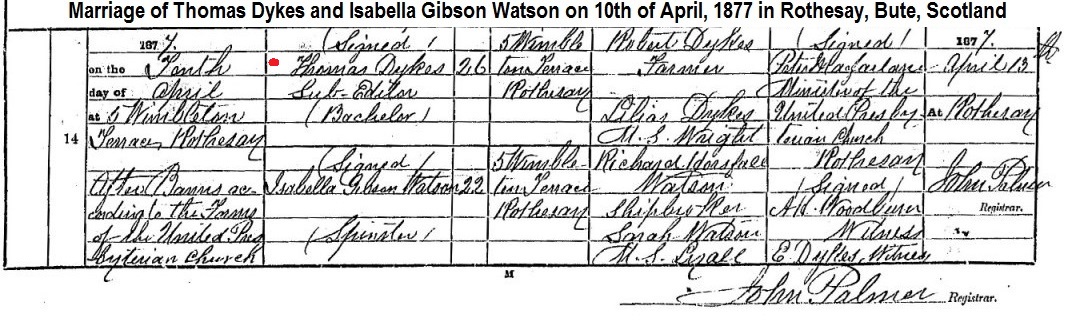 Marriage of Thomas Dykes and Isabella Gibson Watson on 10th of April, 1877 in Rothesay, Bute, Scotland
1877.
on the Tenth
day of April
at 5 Wimbleton
Terrace, Rothesay
After Banns ac-
cording to the Forms
of the United Pres
byterian Church
14
(Signed)
Thomas Dykes
Sub-Editor
(Bachelor)
(Signed)
Isabella Gibson Watson
(Spinster)
26
22
5 Wimble
ton Terrace
Rothesay
5 Wimble-
ton Terrace
Rothesay
Robert Dykes
Farmer
Lilias Dykes
M.S. Wright
Richard
Watson
Shipbroker
Sarah Watson
M.S. Lyall
(Signed)
Peter Macfarlane
Minister of the
United Presby-
terian Church
Rothesay
(Signed)
Woodburn
Witness
E. Dykes, Witness
1877.
April 13th
At Rothesay
John Palmer
Registrar.
M
John Palmer Registrar.